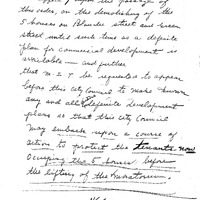 upon the passage of
this order, on the demolishing of the
5 houses on Blanche street and Green
street until such time as a definite
plan for commercial development is
available — and further
that M.I.T. be requested to appear
before this city Council to make known
any and all definite development
plans so that this City Council
may embark upon a course of
action to protect the tenants now
occupying the 5 houses before
the lifting of the moratorium.